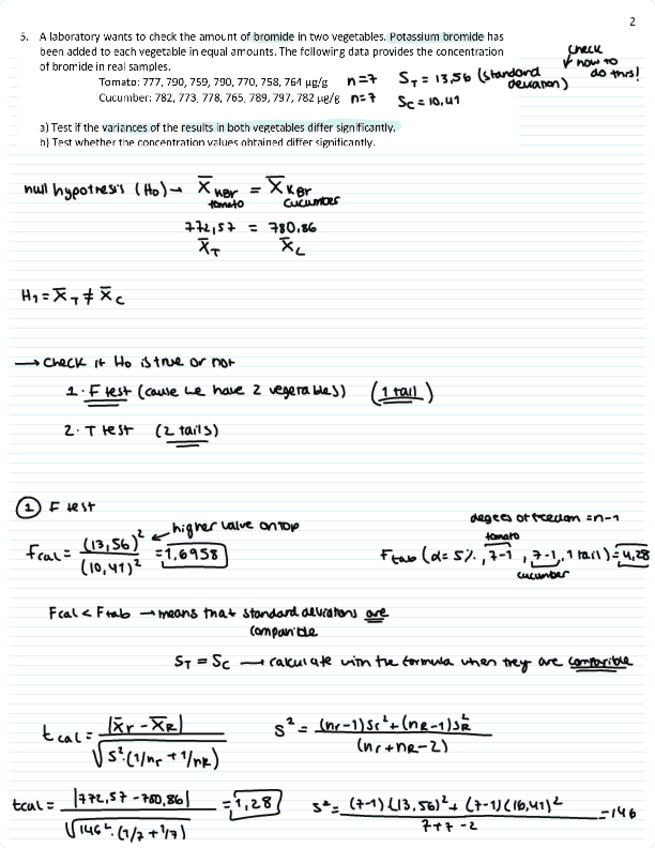 2
5. A laboratory wants to check the amount of bromide in two vegetables. Potassium bromide has
been added to each vegetable in equal amounts. The following data provides the concentration
of bromide in real samples.
Tomato: 777, 790, 759, 790, 770, 758, 764 µg/g n=7 ST = 13,56 (standard deviation)
check how to do this!
Cucumber: 782, 773, 778, 765, 789, 797, 782 µg/g n=7 SC = 10,41
a) Test if the variances of the results in both vegetables differ significantly.
b) Test whether the concentration values obtained differ significantly.
null hypotresis (H0) → X̄ KBr tomato = X̄ KBr cucumber
772,57 = 780,86
X̄T X̄C
H1 = X̄T ≠ X̄C
→ Check if H0 is true or not
1. F test (cause we have 2 vegetables) (1 tail)
2. T test (2 tails)
① F test
Fcal = (13,56)² / (10,41)² = 1,6958 ← higher value on top
degees of freedom = n-1
Ftab (α = 5%, 7-1, 7-1, 1 tail) = 4,28
tomato
cucumber
Fcal < Ftab → means that standard deviations are
comparible
ST = SC → calculate with the formula when they are comparible
tcal = |X̄r - X̄R| / √S²·(1/nr + 1/nR) S² = (nr-1)Sr² + (nR-1)SR² / (nr + nR - 2)
tcal = |772,57 - 780,86| / √146²·(1/7 + 1/7) = 1,28 S² = (7-1)(13,56)² + (7-1)(10,41)² / 7+7-2 = 146